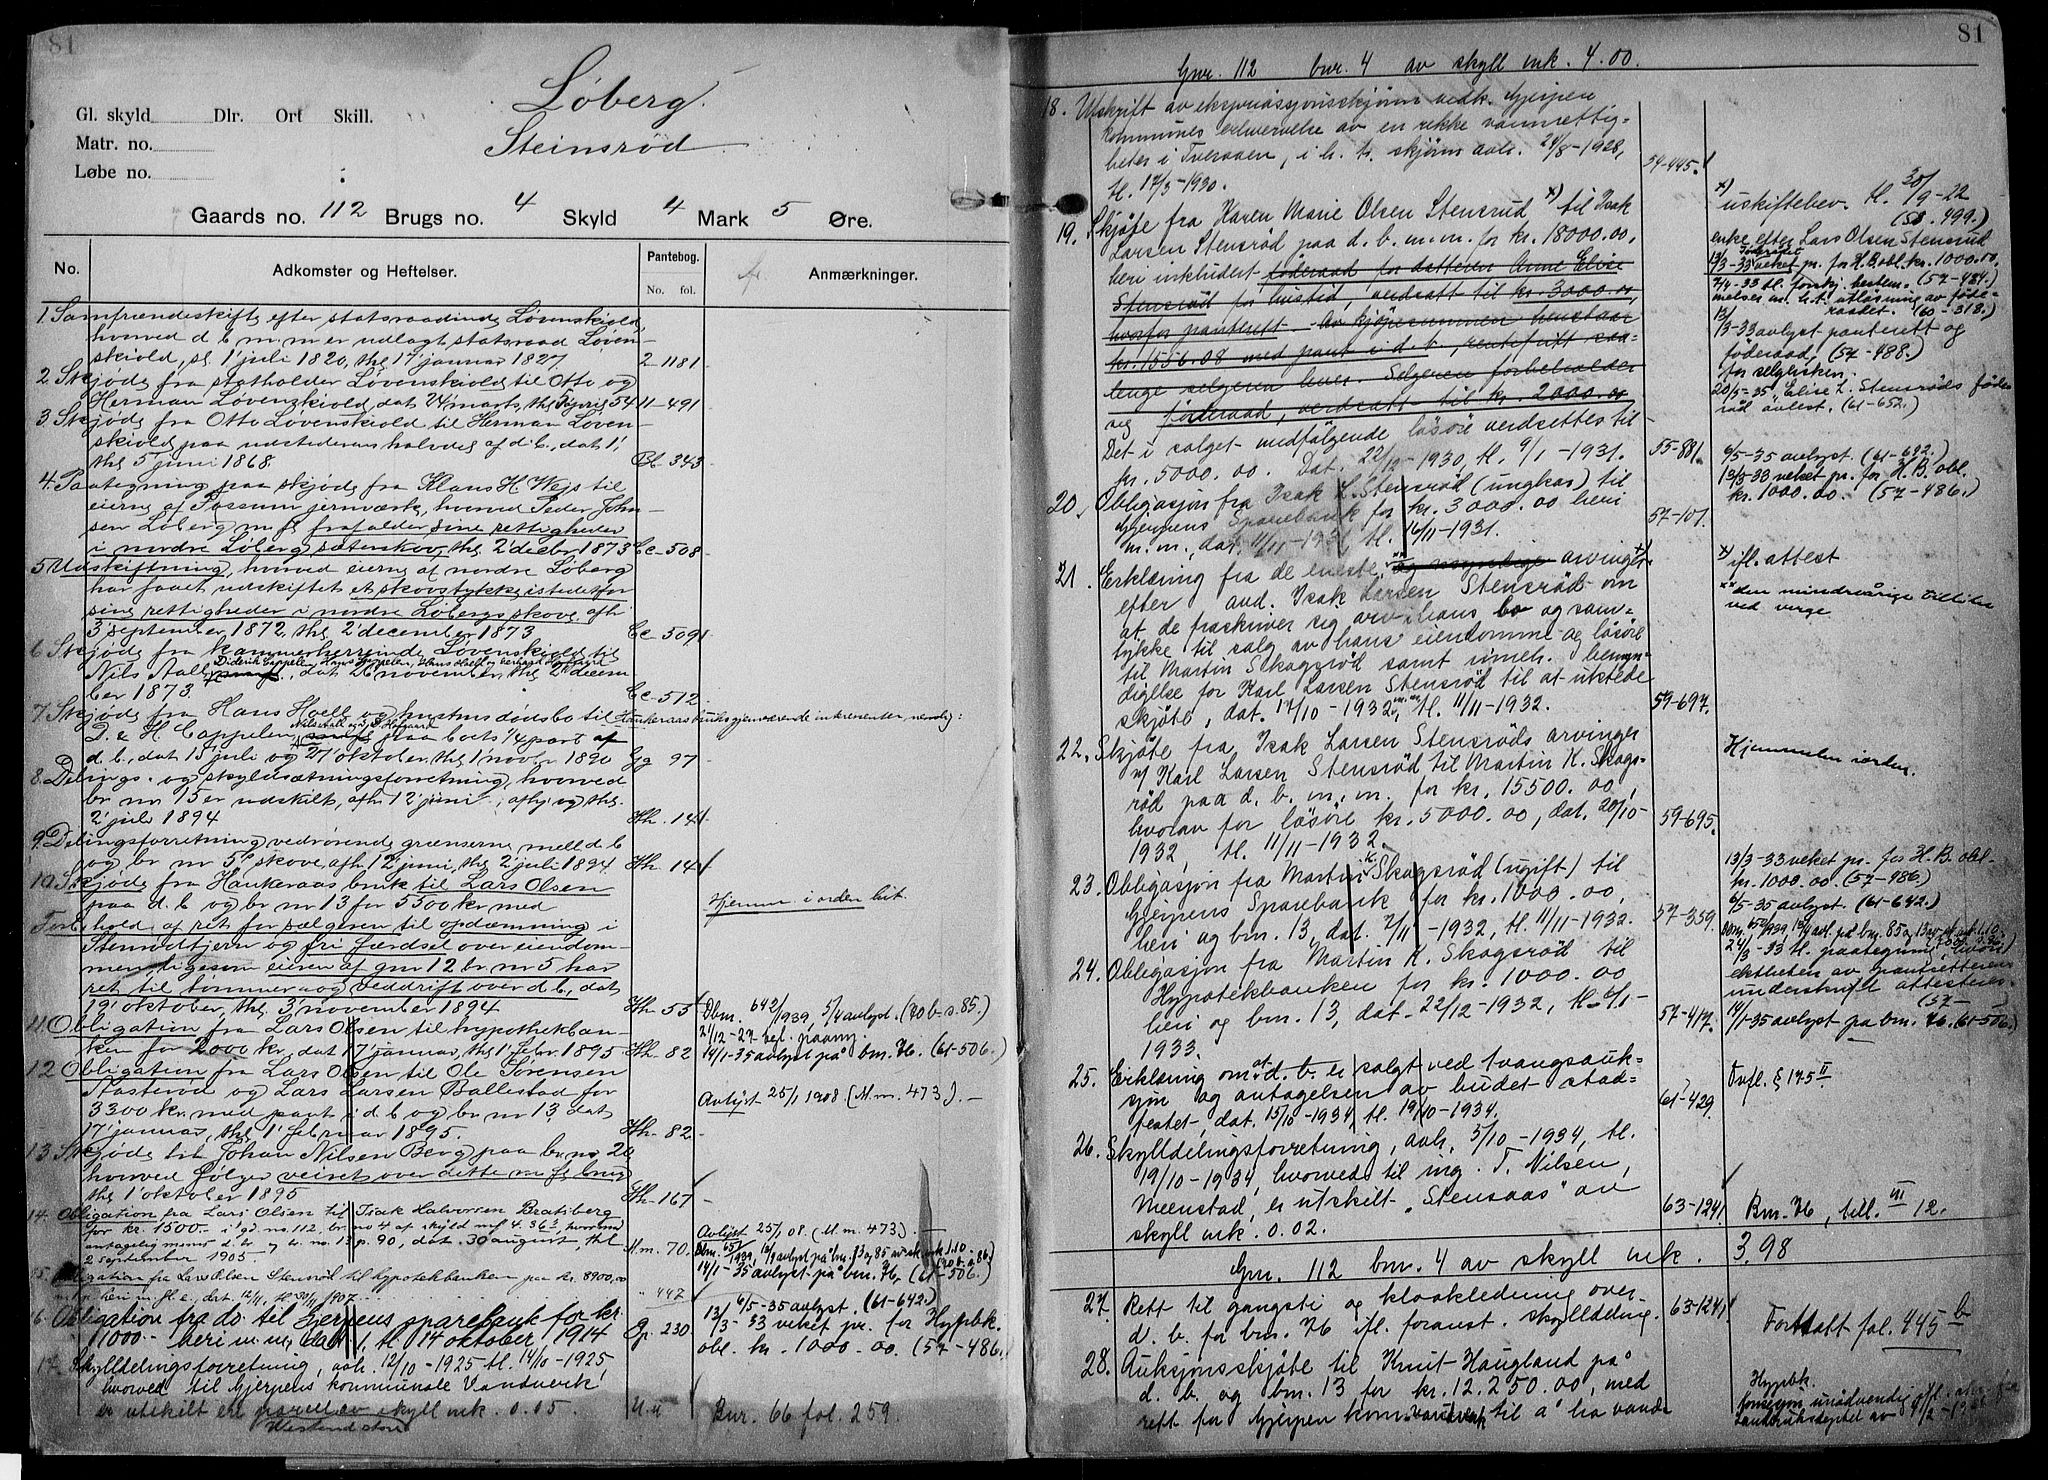 81
Løberg.
Steinsrød
Gl. skyld Dlr. Ort Skill.
Matr. no.
Løbe no.
Gaards no. 112 Brugs no. 4 Skyld 4 Mark 5 Øre.
No. Adkomster og Heftelser. Pantebog. No. fol. Anmærkninger.
1. Samfrændeskifte efter statsraadinde Løvenskiold,
hvorved d b m m er udlagt statsraad Løven-
skiold, sl 1' juli 1820, thl 17 januar 1827. 2 1181
2 Skjøde fra statholder Løvenskiold til Otto og
Herman Løvenskiold, dat 24' marts, thl april 54 11-491
3. Skjøde fra Otto Løvenskiold til Herman Løven-
skiold paa udstederens halvdel af d. b, dat 1',
thl 5' juni 1868. Bb 343
4. Paategning paa skjøde fra Klaus H. Wejs til
eierne af Fossum jernværk, hvorved Peder John-
sen Løberg m fl frafalder sine rettigheder
i nordre Løberg sæterskov, thl 2' decbr 1873 Cc 508
5 Udskiftning, hvorved eierne af nordre Løberg
har faaet udskiftet et skovstykke istedetfor
sine rettigheder i nordre Løbergs skove, afh
3' september 1872, thl 2' december 1873 Cc 509
6 Skjøde fra kammerherreinde Løvenskiold til
Diderik Cappelen, Hans Cappelen, Hans Hoell og
Nils Aall, dat 26' november, thl 2' decem
ber 1873. Cc-512
7. Skjøde fra Hans Hoell og hustrus dødsbo til Hankeraas bruks gjenværende interessenter, nemlig:
D. & H Cappelen paa borts 1/4 part af
d. b., dat 15' juli og 27' oktober, thl 1' novbr 1890 Gg 97
8. Delings- og skyldsætningsforretning, hvorved
br nr 15 er udskilt, afh 12' juni, afhj og thl.
2' juli 1894 Hh. 141
9. Delingsforretning vedrørende grænserne mell d b
og br nr 5s skove, afh 12' juni, thl 2' juli 1894. Hh 141
10. Skjøde fra Hankeraas bruk til Lars Olsen
paa d. b og br nr 13 for 5500 kr med Hjemm. i orden hit.
Forbehold af ret for sælgeren til opdæmning i
Stenrødtjern og fri færdsel over eiendom-
men, ligesom eieren af gnr 12 br nr 5 har
ret til tømmer- og veddrift over d b, dat
19' oktober, thl 3' november 1894 Hh 55
11 Obligation fra Lars Olsen til hypothekban-
ken for 2000 kr, dat 17' januar, thl 1' febr. 1895 Hh-82
Dbm. 642/1939, 5/4 avlyst. (70 b-s.85.)
14/1-35 avlyst på bnr. 76. (61-506.)
12 Obligation fra Lars Olsen til Ole Sørensen
og Lars Larsen Ballestad for
3300 kr med pant i d b og br nr 13, dat
17' januar, thl 1' februar 1895. Hh-82
Avlyst 25/1 1908 (M.m. 473). —
13. Skjøde til Johan Nilsen Berg paa br nr 20
hvorved følger veiret over dette m fl bruk
thl 1' oktober 1895 Hh-167
14. Obligation fra Lars Olsen til Isak Halvorsen Bratsberg
for kr. 1500.- i gd. no. 112, br no 4 af skyld mk 4.363, hvorom
antagelig menes d. br. og br. no. 13 p. 90, dat. 30 august, thl
2 september 1905 M.m. 70.
Avlyst 25/1 08. (M.m. 473).
15. Obligation fra Lars Olsen Stensrød til hypotekbanken paa kr. 8900,00
heri m. fl. e., dat. 12/11, tl. 30/11 1907. " 447
14/1-35 avlyst på bnr. 76. (61-506.)
16. Obligation fra do. til Gjerpens sparebank for kr.
1000.- heri m.m, dat 1, tl. 14 oktober 1914 Gp. 230
6/5-35 avlyst. (61-642.)
13/3-33 veket pr. for Hyppbk.
obl. kr. 1000.00. (57-486.)
17. Skylldelingsforretning, avh. 12/10-1925 tl. 14/10-1925
hvorved til Gjerpens kommunale Vandverk
er utskilt en parcell av skyll mk. 0.05. U.u Bnr. 66 fol. 259.

81
Gnr. 112 bnr. 4 av skyll mk. 4.00.
18. Utskrift av ekspropriasjonsskjønn vedk. Gjerpen
kommunes erhvervelse av en rekke vannrettig-
heter i Tveraaen, i h. t. skjønn avh. 24/8-1928,
tl. 17/3-1930. 54-445.
19. Skjøte fra Karen Marie Olsen Stensrud x) til Isak
Larsen Stensrød paa d. b. m.m. for kr. 18000.00,
heri inkludert föderaad for datteren Anne Elise
Stensrød for livstid, verdsatt til kr. 3000.00,
hvorfor panterett. Av kjøpesummen henstaar
kr. 1556.08 med pant i d. b., rentefritt saa-
lenge selgeren lever. Selgeren forbeholder
seg föderaad, verdsatt til kr. 2000.00
Det i salget medfølgende løsöre verdsettes til
kr. 5000.00. Dat. 22/12-1930, tl. 9/1-1931. 55-881.
x) uskiftebev. tl. 30/9-22
(58.499.)
enke efter Lars Olsen Stensrud
13/3-33 veket pr. for H.B. obl. kr. 1000.00.
(57-484.)
(60-318.)
13/3-33 avlyst panterett og
föderaad, (57-488.)
for selgersken.
20/5-35 Elise L. Stensrøds föde-
råd avlest. (61-652.)
20. Obligasjon fra Isak L. Stensrød (ungkar) til
Gjerpens Sparebank for kr. 3000.00 heri
m. m., dat. 11/11-1931, tl. 16/11-1931. 57-101.
6/5-35 avlyst. (61-692.)
13/3-33 veket pr. for H.B. obl.
kr. 1000.00. (57-486.)
21. Erklæring fra de eneste og myndige arvinger x)
efter avd. Isak Larsen Stensrød om
at de fraskriver seg arv i hans bo og sam-
tykke til salg av hans eiendomme og løsöre
til Martin Skogsrød samt inneh. bemyn-
digelse for Karl Larsen Stensrød til at utstede
skjøte, dat. 17/10-1932, tl. 11/11-1932. 59-697.
x) ifl. attest
xx) den mindreårige tilltrer
ved verge
22. Skjøte fra Isak Larsen Stensrøds arvinger
v/ Karl Larsen Stensrød til Martin K. Skogs-
rød paa d. b. m. m. for kr. 15500.00,
hvorav for løsöre kr. 5000.00, dat. 20/10-
1932, tl. 11/11-1932. 59-695.
Hjemmelen i orden.
23. Obligasjon fra Martin K. Skogsrød (ugift) til
Gjerpens Sparebank for kr. 1000.00,
heri og bnr. 13, dat. 7/11-1932, tl. 11/11-1932. 57-359.
13/3-33 veket pr. for H.B. obl-
kr. 1000.00. (57-486.)
6/5-35 avlyst. (61-642.)
24. Obligasjon fra Martin K. Skogsrød til
Hypotekbanken for kr. 1000.00
heri og bnr. 13, dat. 22/12-1932, tl. 6/1-
1933. 57-417.
24/3-33 tl. paategning,
ektheten av pantsetterens
underskrift attesteres.
14/1-35 avlyst på bnr. 76. (61-506.)
25. Erklæring om at d. b. er solgt ved tvangsauk-
sjon og antagelsen av budet stad-
festet, dat. 15/10-1934, tl. 19/10-1934. 61-429.
Tvfl. § 175 II
26. Skylldelingsforretning, avh. 5/10-1934, tl.
19/10-1934, hvorved til ing. T. Nilsen,
Menstad, er utskilt "Stensaas" av
skyll mk. 0.02. 63-1241. Bnr. 76, till. III 12.
Gnr. 112 bnr. 4 av skyll mk. 3.98
27. Rett til gangsti og kloakledning over
d. b. for bnr. 76 ifl. foranst. skylldeling. 63-1241
Fortsatt fol. 445 b
28. Auksjonsskjøte til Knut Haugland på
d. b. og bnr. 13 for kr. 12.250.00, med
rett for Gjerpen kom. vandverk til å ha vandl-
Hypbk.